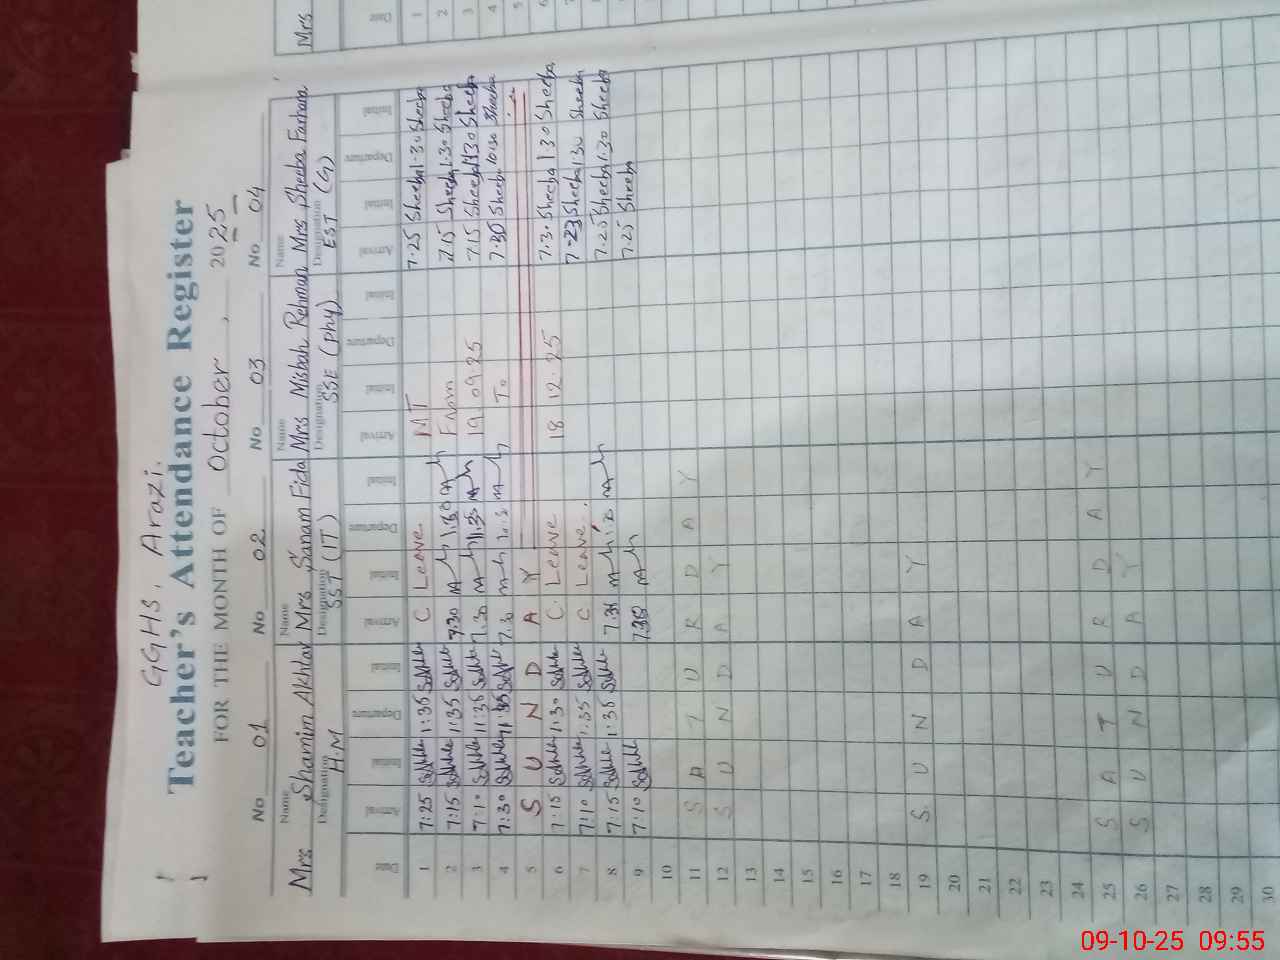 GGHS, Arazi.
Teacher's Attendance Register
FOR THE MONTH OF October, 2025
No 01 No 02 No 03 No 04
Name Name Name Name
Mrs Shamim Akhtar Mrs Sanam Fida Mrs Misbah Rehman Mrs Sheeba Farhana
Designation Designation Designation Designation
H.M SST (IT) SSE (phy) EST (G)
Date Arrival Initial Departure Initial Arrival Initial Departure Initial Arrival Initial Departure Initial Arrival Initial Departure Initial
1 7:25 1:35 C Leave MT 7.25 Sheeba 1.30 Sheeba
2 7:15 1:35 7.30 1:30 From 7.15 Sheeba 1.30 Sheeba
3 7:10 11:35 7.30 11.35 19 09.25 7.15 Sheeba 11:30 Sheeba
4 7:30 7.30 To 7.30 Sheeba 10:30 Sheeba
5 S U N D A Y
6 7:15 1:30 C Leave 18 12.25 7.30 Sheeba 1 30 Sheeba
7 7:10 1:35 C Leave 7.23 Sheeba 1:30 Sheeba
8 7:15 1:35 7.25 Sheeba 1:30 Sheeba
9 7:10 7.25 Sheeba
10
11 S A T U R D A Y
12 S U N D A Y
13
14
15
16
17
18
19 S U N D A Y
20
21
22
23
24
25 S A T U R D A Y
26 S U N D A Y
27
28
29
30
Mrs
Date
1
2
3
4
5
6
09-10-25 09:55